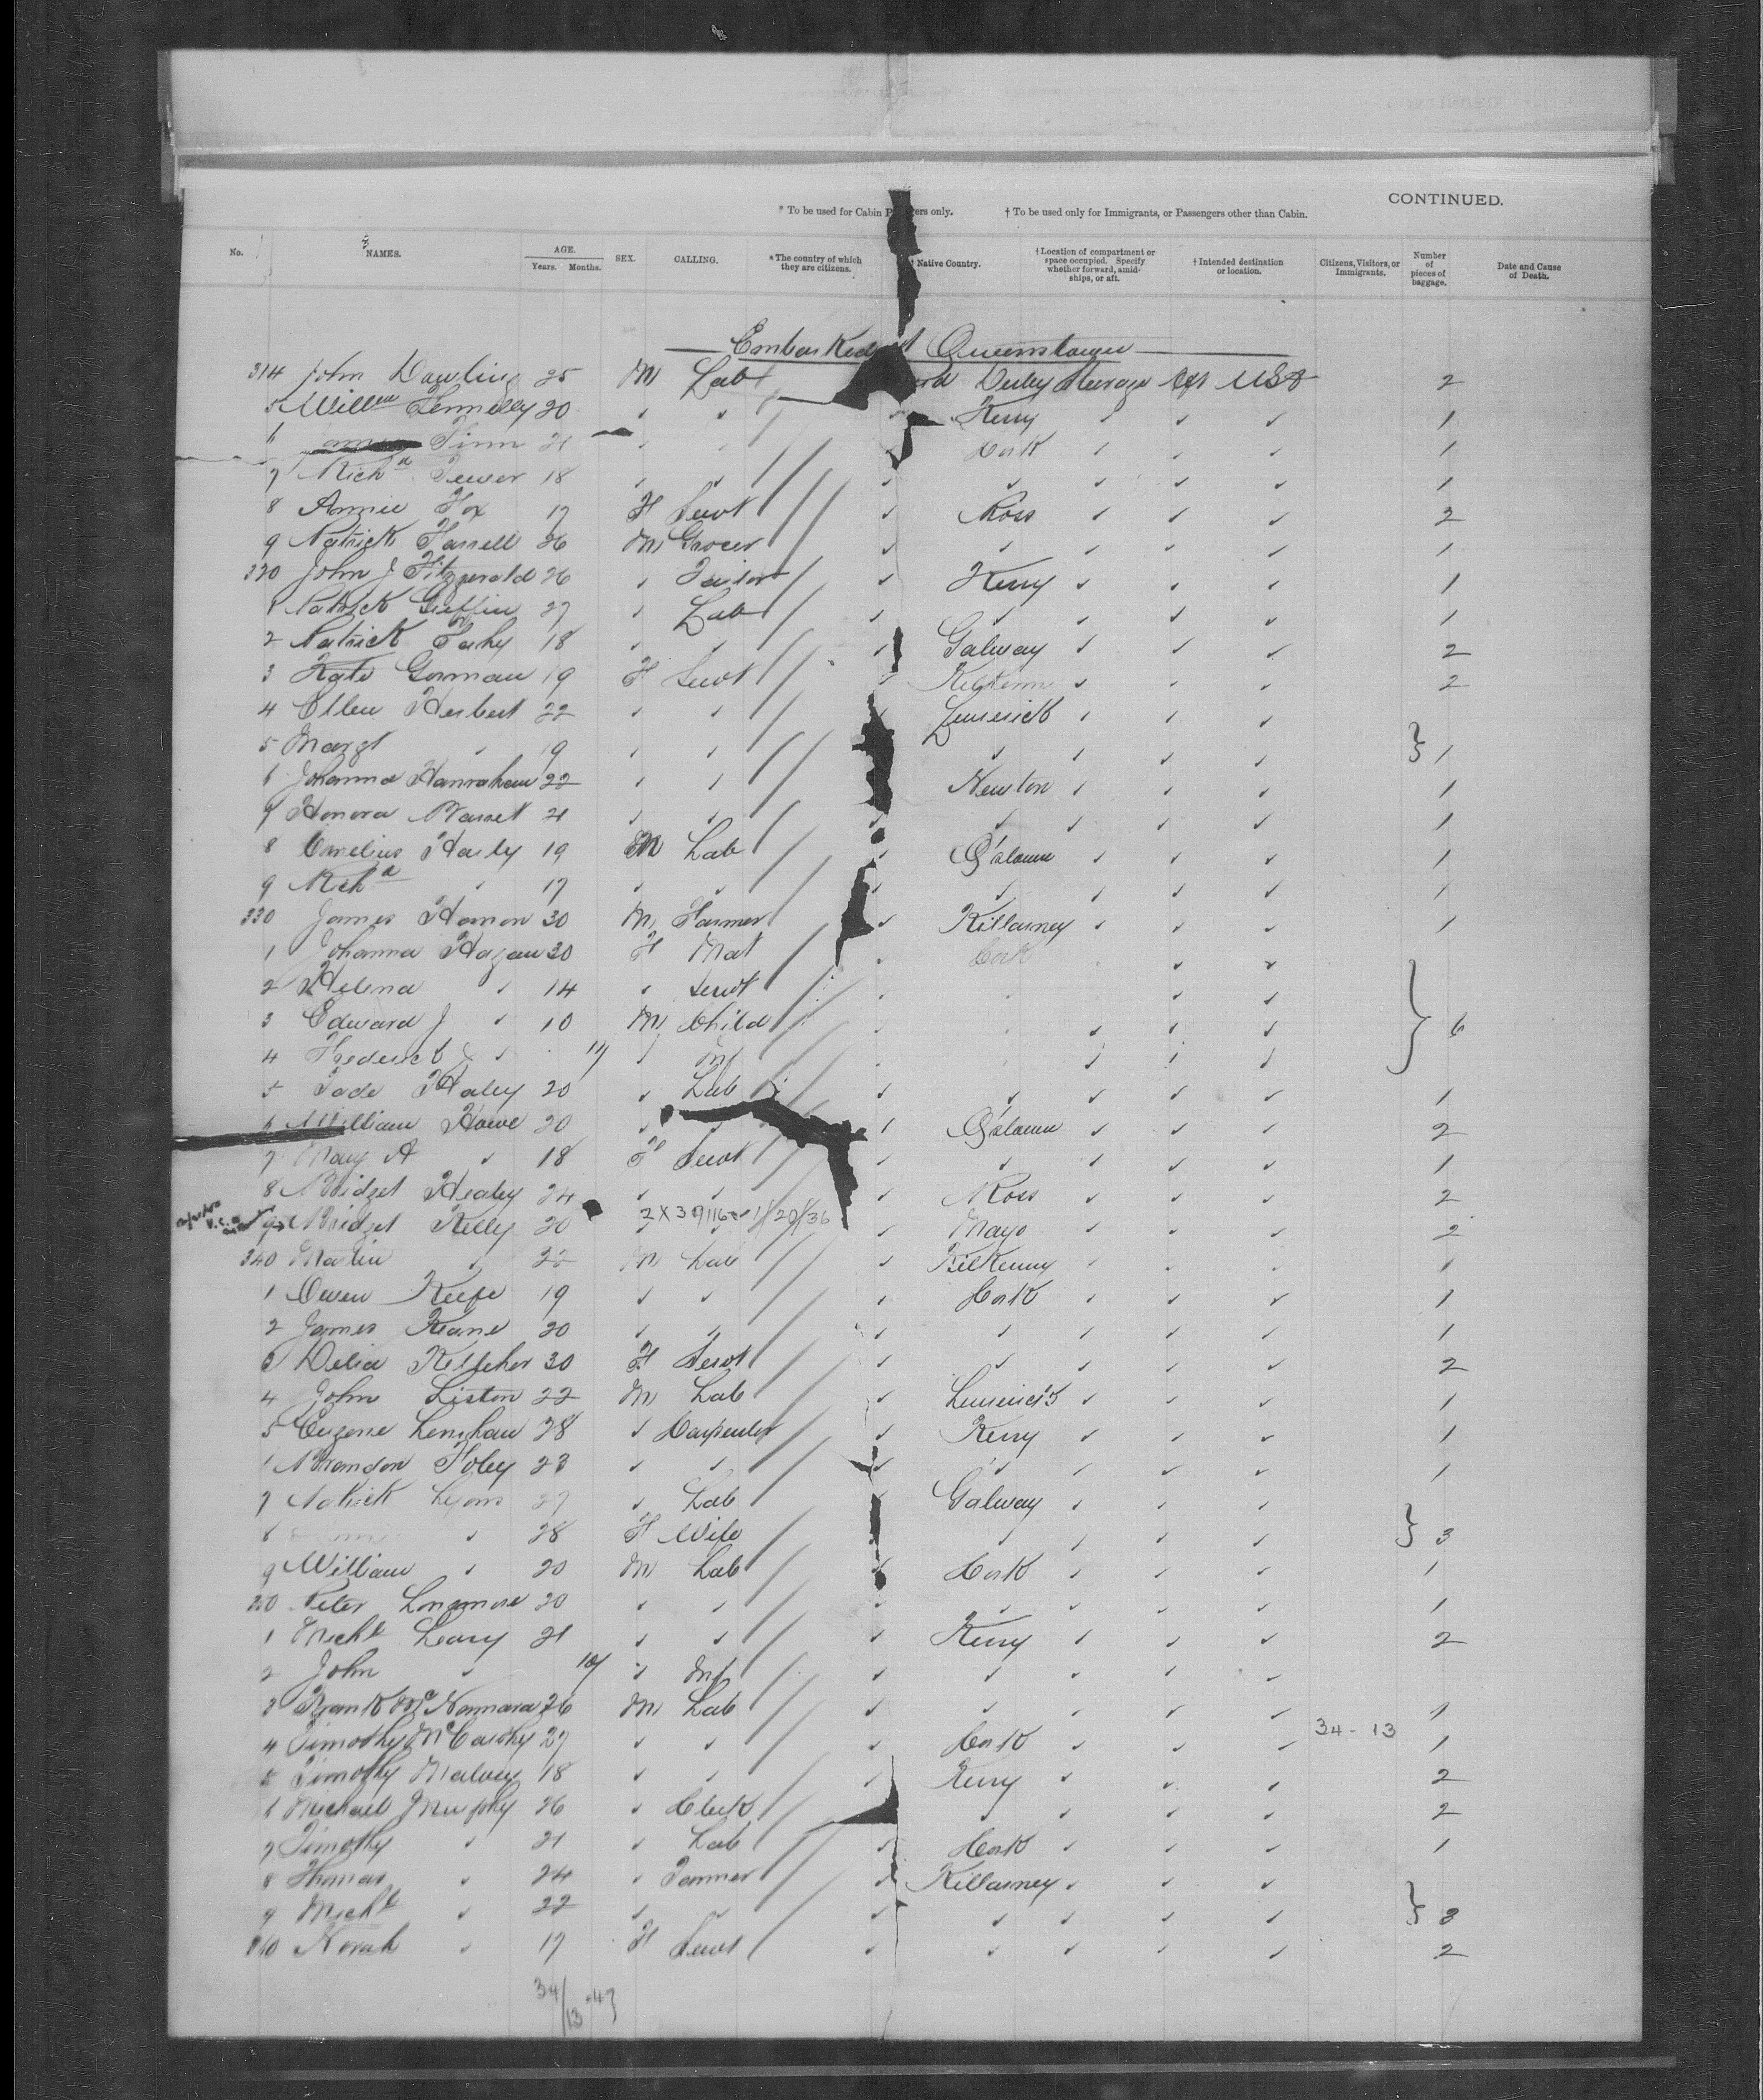 CONTINUED.
* To be used for Cabin P ers only. † To be used only for Immigrants, or Passengers other than Cabin.
No. NAMES. AGE. Years. Months. SEX. CALLING. * The country of which they are citizens. Native Country. † Location of compartment or space occupied. Specify whether forward, amidships, or aft. † Intended destination or location. Citizens, Visitors, or Immigrants. Number of pieces of baggage. Date and Cause of Death.
Embarked at Queenstown
314 John Dowling 25 M Lab Steerage Aft USA 2
5 Willm Fennelly 20 ✓ ✓ ✓ Kerry ✓ ✓ ✓ 1
6 Finn 21 ✓ ✓ ✓ Cork ✓ ✓ ✓ 1
7 Richd 18 ✓ ✓ ✓ ✓ ✓ ✓ ✓ 1
8 Annie Fox 17 F Servt ✓ Ross ✓ ✓ ✓ 2
9 Patrick Farrell 26 M Grocer ✓ ✓ ✓ ✓ ✓ 1
320 John J Fitzgerald 26 ✓ Tailor ✓ Kerry ✓ ✓ ✓ 1
1 Patrick Griffin 27 ✓ Lab ✓ ✓ ✓ ✓ ✓ 1
2 Patrick Fahy 18 ✓ ✓ ✓ Galway ✓ ✓ ✓ 2
3 Kate Gorman 19 F Servt ✓ Kilkenn ✓ ✓ ✓ 2
4 Ellen Herbert 22 ✓ ✓ Limerick ✓ ✓ ✓
5 Margt " 19 ✓ ✓ ✓ ✓ ✓ ✓ } 1
6 Johanna Hanrahan 22 ✓ ✓ Newton ✓ ✓ ✓ 1
7 Honora 21 ✓ ✓ ✓ ✓ ✓ ✓ ✓ 1
8 Cornelius Harly 19 M Lab ✓ Q'stown ✓ ✓ ✓ 1
9 Richd " 17 ✓ ✓ ✓ ✓ ✓ ✓ ✓ 1
330 James Hannon 30 M Farmer ✓ Killarney ✓ ✓ ✓ 1
1 Johanna Hagan 30 F Mat ✓ Cork ✓ ✓
2 Helena ✓ 14 ✓ Servt ✓ ✓ ✓
3 Edward J ✓ 10 M Child ✓ ✓ ✓ ✓ } 6
4 Frederick J ✓ 11/ ✓ Inf ✓ ✓ ✓
5 Tade Haley 20 ✓ Lab ✓ ✓ ✓ ✓ ✓ 1
6 William Howe 20 ✓ ✓ ✓ Q'stown ✓ ✓ ✓ 2
7 Mary A ✓ 18 F Servt ✓ ✓ ✓ ✓ ✓ 1
8 Bridget Healey 24 ✓ ✓ ✓ Ross ✓ ✓ ✓ 2
9 Bridget Kelly 20 2 X 39116 1/20/36 ✓ Mayo ✓ ✓ ✓ 2
340 Martin ✓ 22 M Lab ✓ Kilkenny ✓ ✓ ✓ 1
1 Owen Keefe 19 ✓ ✓ ✓ Cork ✓ ✓ ✓ 1
2 James Keane 20 ✓ ✓ ✓ ✓ ✓ ✓ ✓ 1
3 Delia Kelleher 30 F Servt ✓ ✓ ✓ ✓ ✓ 2
4 John Liston 22 M Lab ✓ Limerick ✓ ✓ ✓ 1
5 Eugene Lenihan 28 ✓ Carpenter ✓ Kerry ✓ ✓ ✓ 1
Brandon Foley 23 ✓ ✓ ✓ ✓ ✓ ✓ ✓ 1
7 Patrick Lyons 27 ✓ Lab Galway ✓ ✓ ✓
8 ✓ 28 F Wife ✓ ✓ ✓ ✓ } 3
9 William ✓ 20 M Lab ✓ Cork ✓ ✓ ✓ 1
Peter 20 ✓ ✓ ✓ ✓ ✓ ✓ ✓ 1
1 Michl Leary 21 ✓ ✓ ✓ Kerry ✓ ✓ ✓ 2
2 John ✓ 10/ ✓ Inf ✓ ✓ ✓ ✓ ✓
3 Frank McNamara 26 M Lab ✓ ✓ ✓ ✓ ✓ 1
4 Timothy McCarthy 27 ✓ ✓ ✓ Cork ✓ ✓ ✓ 34 - 13 1
5 Timothy 18 ✓ ✓ ✓ Kerry ✓ ✓ ✓ 2
6 Michael J Murphy 26 ✓ Clerk ✓ ✓ ✓ ✓ 2
7 Timothy ✓ 21 ✓ Lab ✓ Cork ✓ ✓ ✓ 1
8 Thomas ✓ 24 ✓ ✓ Killarney ✓ ✓ ✓
9 Michl ✓ 22 ✓ ✓ ✓ ✓ ✓ ✓ ✓ } 3
Norah ✓ 17 F Servt ✓ ✓ ✓ ✓ ✓ 2
34/13 47